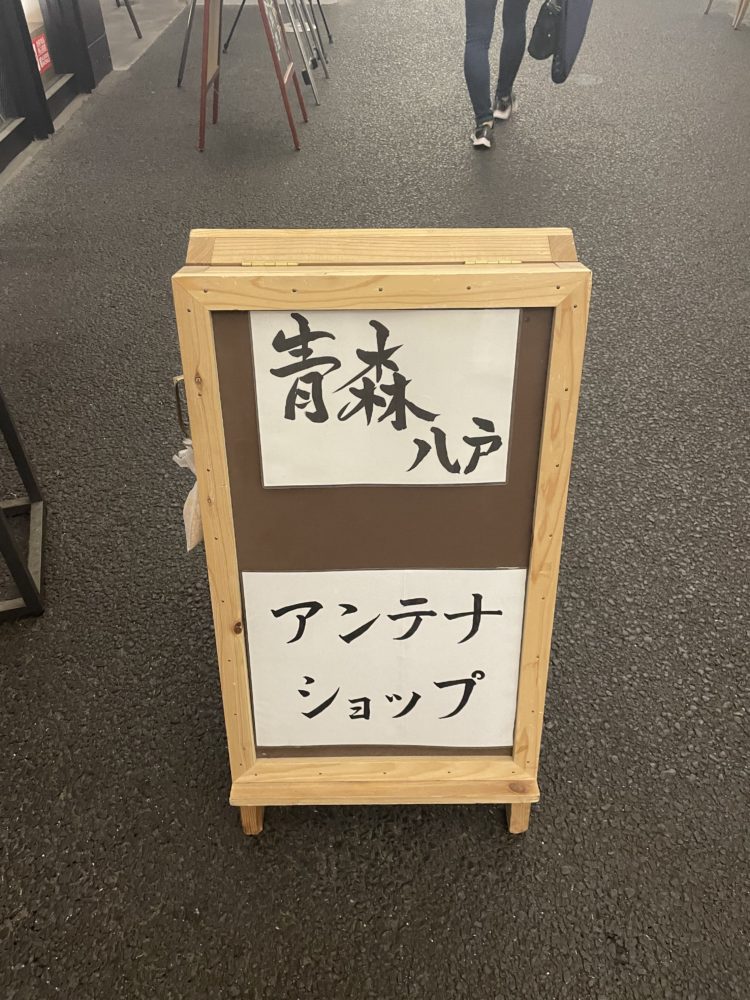 青森
八戸
アンテナ
ショップ